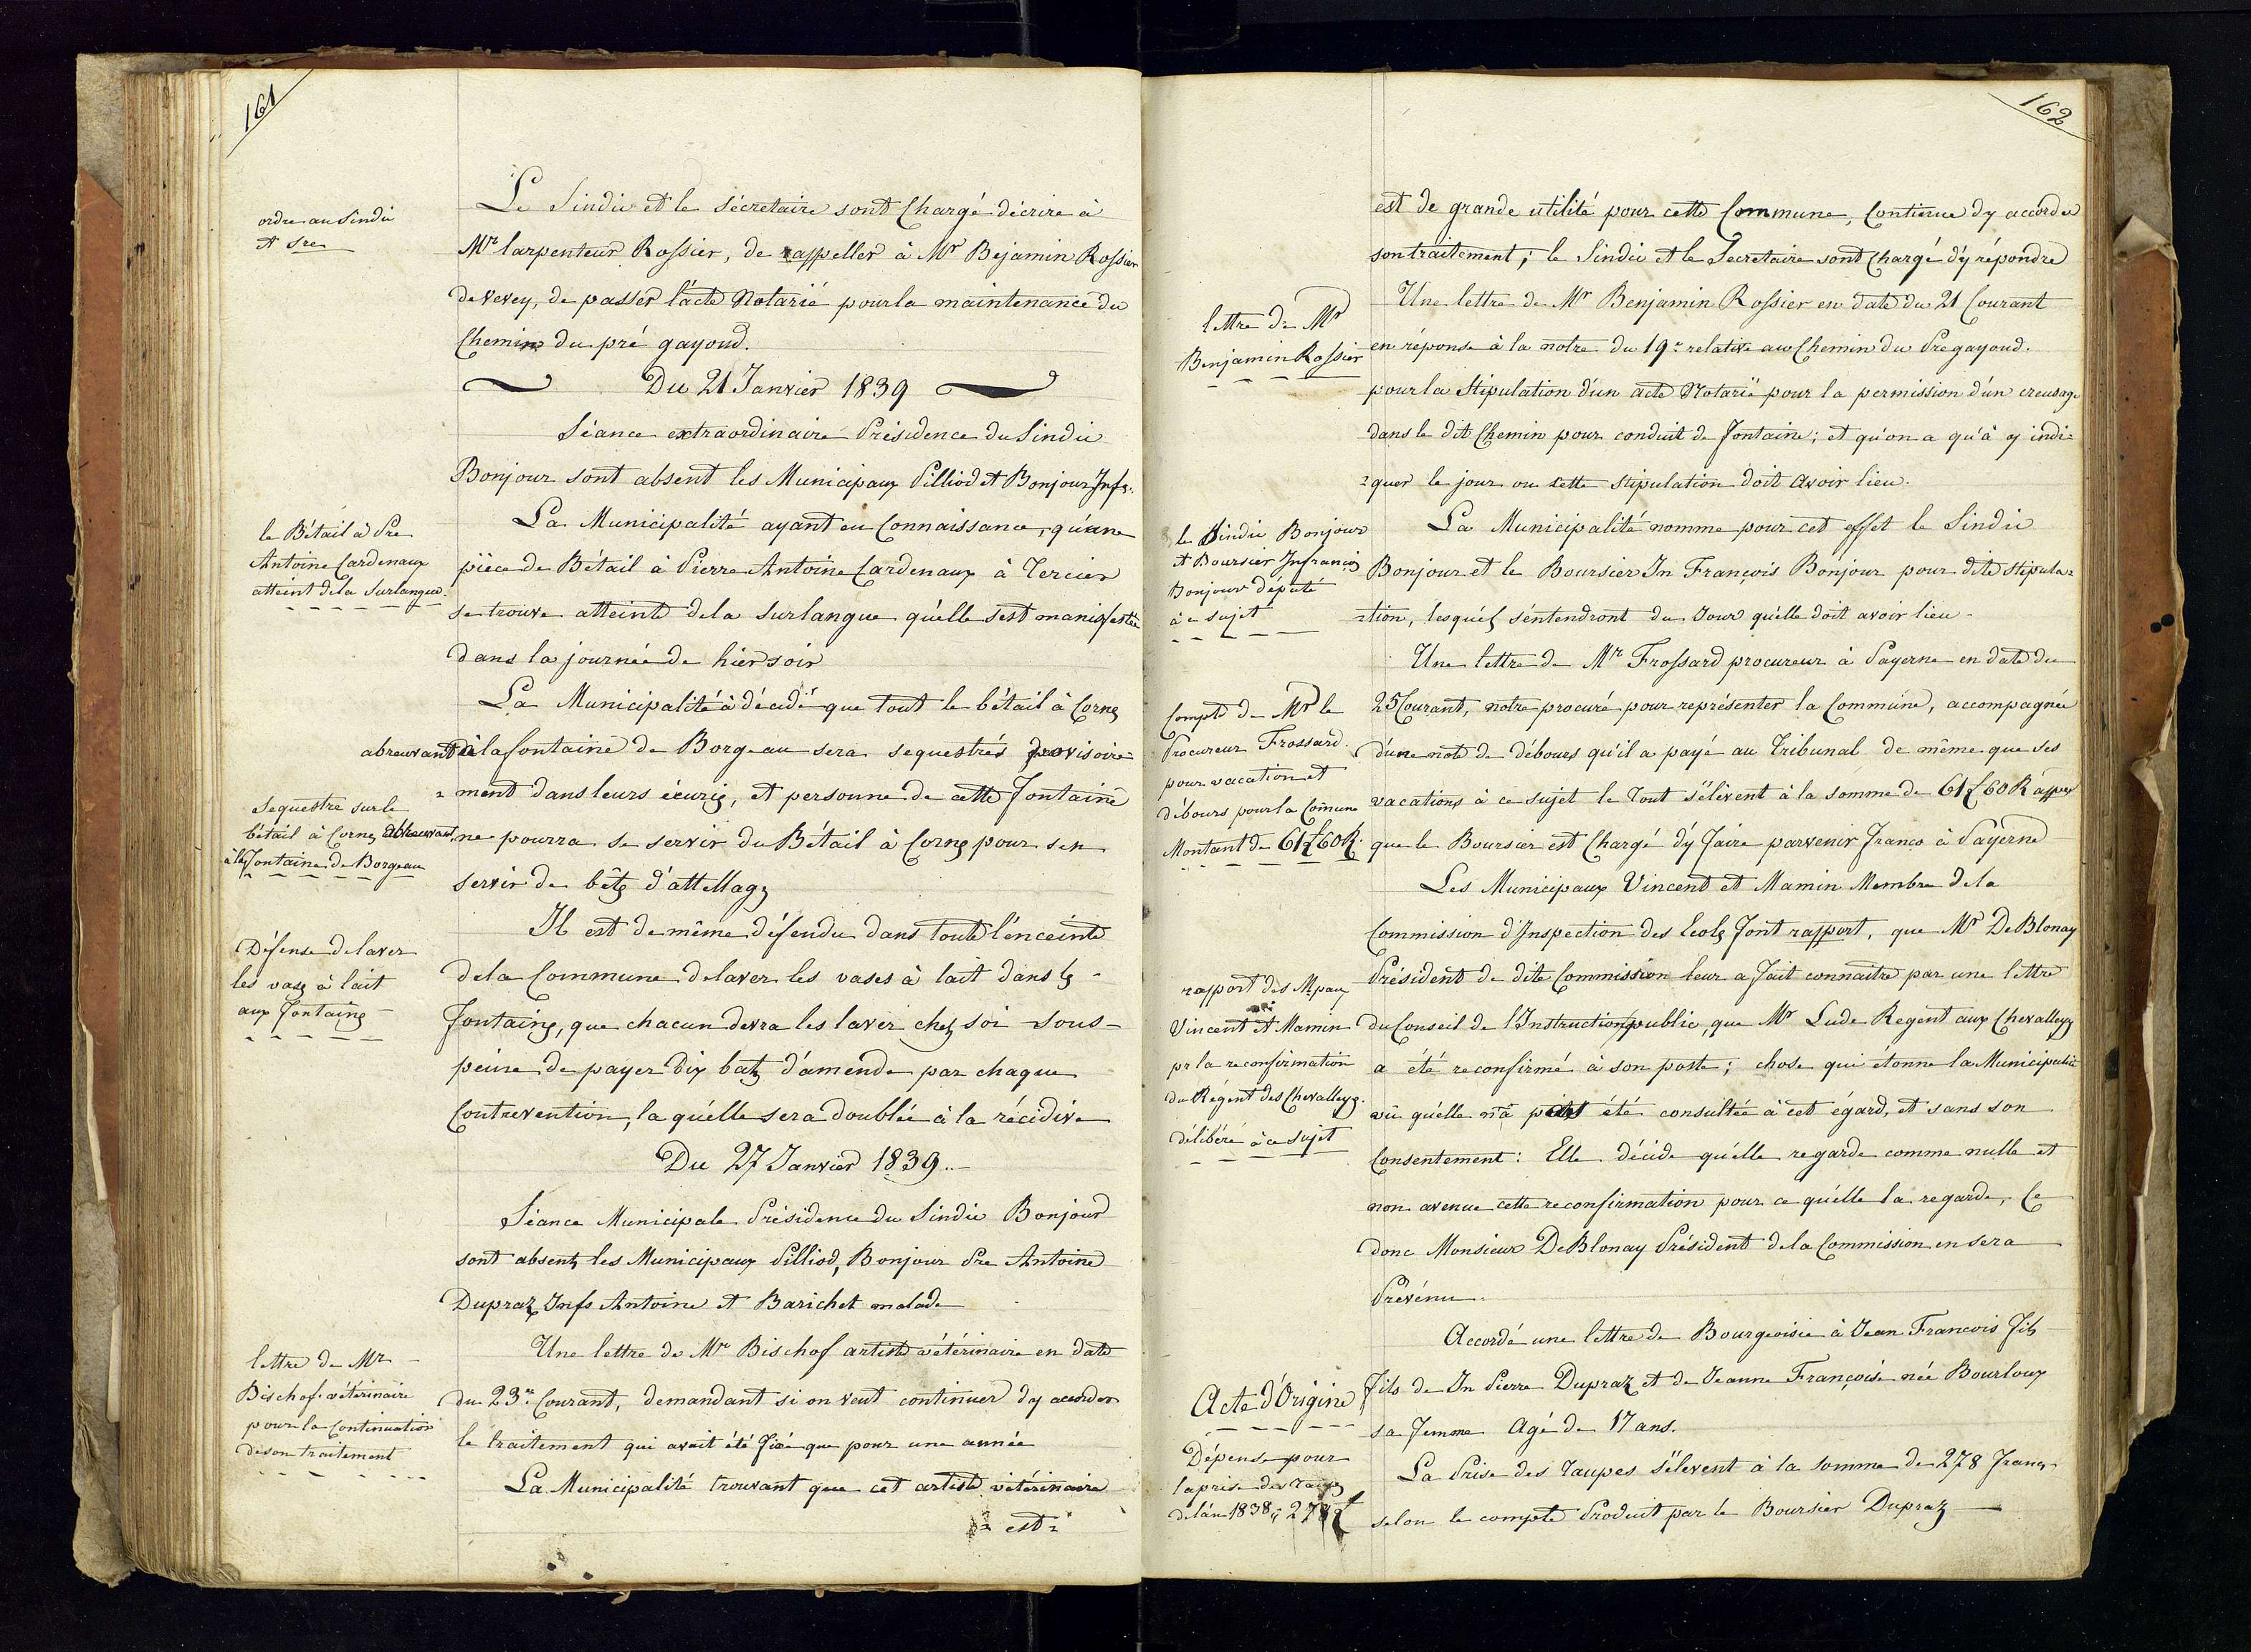 161
ordre au Sindic
et Sre
Le Sindic et le Sécretaire sont Chargé décrire à
Mr larpenteur Rossier, de rappeller à Mr Bejamin Rossier
de Vevey, de passer l'acte Notarié pour la maintenance du
Chemin du pré gayoud.
Du 21 Janvier 1839
Séance extraordinaire Présidence du Sindic
Bonjour sont absent les Municipaux Pilliod et Bonjour Jnfs.
le Bétail à Pre
Antoine Cardenaux
atteint de la Surlangue.
La Municipalité ayant eu Connaissance, qu'une
pièce de Bétail à Pierre Antoine Cardenaux à Tercier
se trouve atteinte de la Surlangue qu'elle s'est manisfestée
dans la journée de hier soir
La Municipalité à décidé que tout le bétail à Cornes
abreuvant à la fontaine de Borgeau sera sequestrés provisoire=
=ment dans leurs écuries, et personne de cette fontaine
ne pourra se servir du Bétail à Cornes pour s'en
servir de bêtes d'attellages
Sequestre sur le
bétail à Cornes abreuvant
à la fontaine de Borgeau
Il est de même défendu dans toute l'enceinte
de la Commune de laver les vases à lait dans les
fontaines, que chacun devra les laver chez soi sous-
peine de payer dix batz d'amende par chaque
Contrevention, la qu'elle sera doublée à la récidive
Défense de laver
les vases à lait
aux fontaines
Du 27 Janvier 1839..
Séance Municipale Présidence du Sindic Bonjour
sont absents les Municipaux Pilliod, Bonjour Pre Antoine
Dupraz Jnfs Antoine et Barichet malade
lettre de Mr
Bischof vétérinaire
pour la Continuation
de son traitement
Une lettre de Mr Bischof artiste vétérinaire en date
du 23e Courant, demandant si on veut continuer d'y accorder
le traitement qui avait été fixé que pour une année
La Municipalité trouvant que cet artiste vétérinaire
= est =
162
est de grande utilité pour cette Commune, Continue d'y accorder
son traitement; le Sindic et le Secretaire sont chargé d'y répondre
lettre de Mr
Benjamin Rossier
Une lettre de Mr Benjamin Rossier en date du 21 Courant
en réponse à la notre du 19e relative au Chemin du Pregayoud.
pour la Stipulation d'un acte Notarié pour la permission d'un creusage
dans le dit Chemin pour conduit de fontaine; et qu'on a qu'à y indi=
=quer le jour ou cette stipulation doit avoir lieu.
le Sindic Bonjour
et Boursier Jnfrançois
Bonjour député
à ce sujet
La Municipalité nomme pour cet effet le Sindic
Bonjour et le Boursier Jn François Bonjour pour dite stipula=
=tion, lesquels s'entendront du Jour qu'elle doit avoir lieu.
Compte de Mr le
Procureur Frossard
pour vacation et
débours pour la Comune
Montant de 61£60R.
Une lettre de Mr Frossard procureur à Payerne en date du
25 Courant, notre procuré pour représenter la Commune, accompagnée
d'une note de débours qu'il a payé au Tribunal de même que ses
vacations à ce sujet le Tout s'élèvent à la somme de 61£60R
que le Boursier est Chargé d'y faire parvenir franco à Payerne
rapport des Mpaux
Vincent et Mamin
pr la reconfirmation
du Régent des Chevalleys.
délibéré à ce sujet
Les Municipaux Vincent et Mamin Membre de la
Commission d'Inspection des Ecoles font rapport, que Mr DeBlonay
Président de dite Commission leur a fait connaitre par une lettre
du Conseil de l'Instruction public, que Mr Lude Regent aux Chevalleys
a été reconfirmé à son poste; chose qui étonne la Municipalité
vû qu'elle n'a point été consultée à cet égard, et sans son
Consentement: Elle décide qu'elle regarde comme nulle et
non avenue cette reconfirmation pour ce qu'elle la regarde, Ce
donc Monsieur DeBlonay Président de la Commission en sera
Prévénu.
Acte d'Origine
Accordé une lettre de Bourgeoisie à Jean Francois fils
fils de Jn Pierre Dupraz et de Jeanne Françoise née Bourloux
sa femme Agé de 17 ans.
Dépense pour
la prise des Taupes
de l'an 1838; 278£
La Prise des Taupes s'élevent à la somme de 278 francs
selon le compte Produit par le Boursier Dupraz